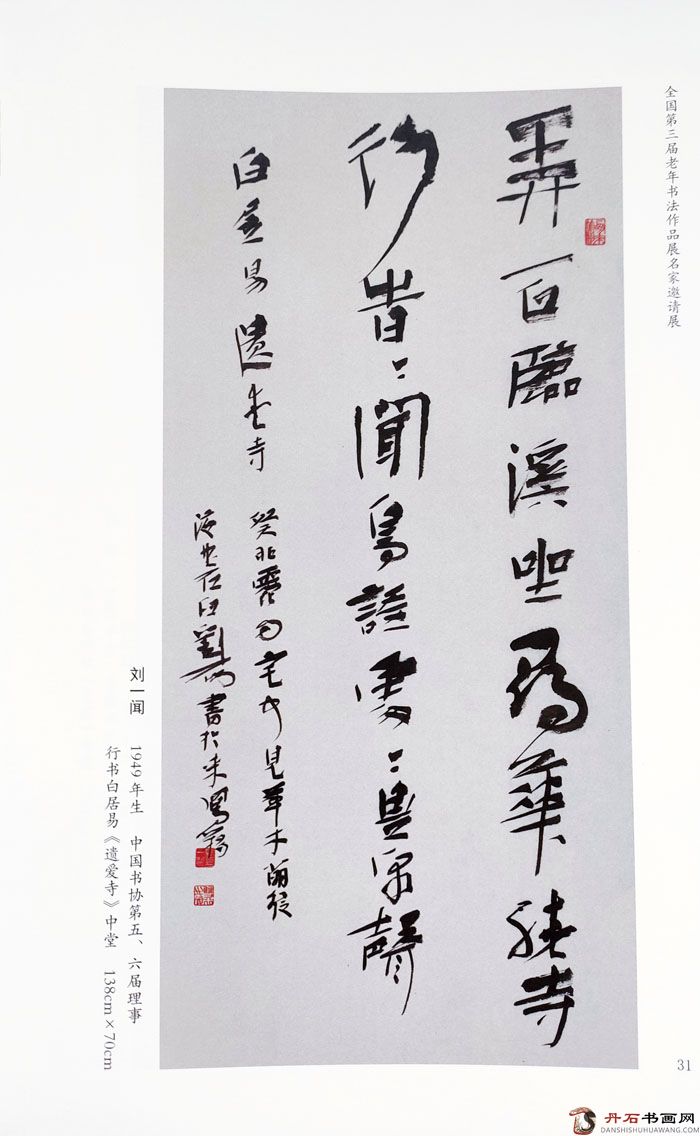 全国第三届老年书法作品展名家邀请展
弄石臨溪坐尋華繞寺
行旹〻聞鳥語處〻是泉聲
白居易遺愛寺
癸卯 見草木萌發
劉 書於
刘一闻 1949年生 中国书协第五、六届理事
行书白居易《遗爱寺》中堂 138cm×70cm
31
丹石书画网
DANSHISHUHUAWANG.COM